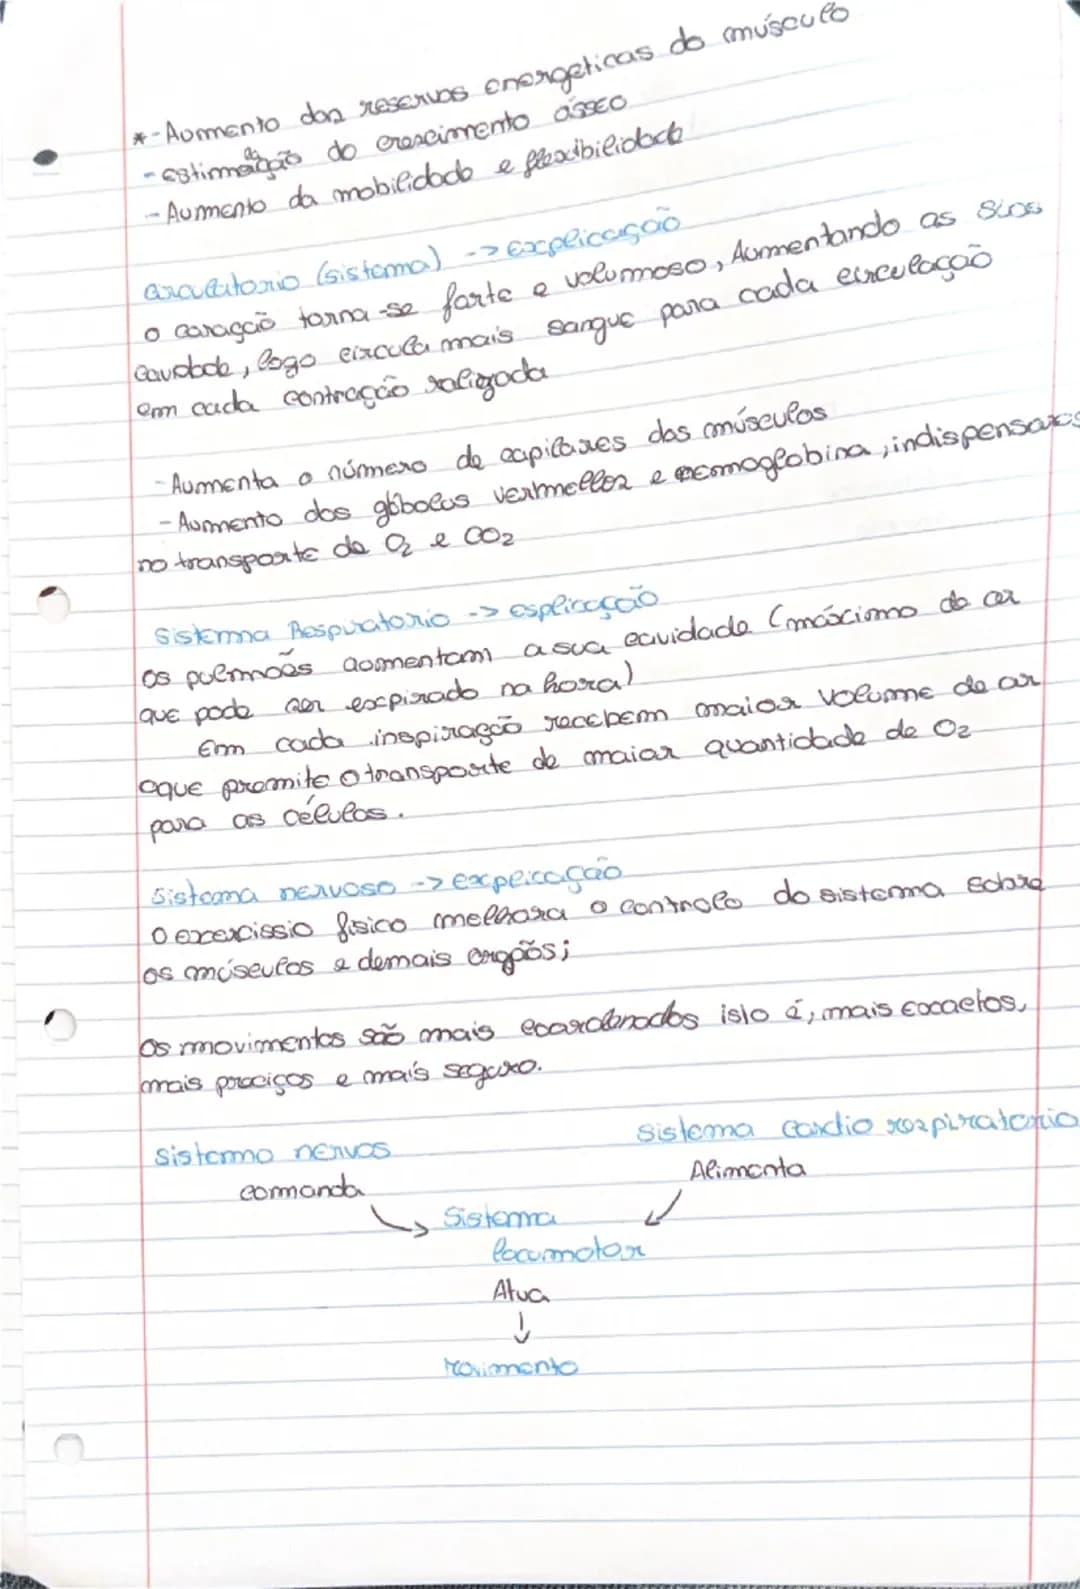 *-Aumento das reservas energeticas do músculo
-estimulação do crescimento ósseo
-Aumento da mobilidade e flexibilidade
circulatorio (sistema) -> Explicação
o coração torna-se forte e volumoso, Aumentando as Suas
cavidade, logo circula mais sangue para cada circulação
em cada contração realizada
-Aumenta o número de capilares dos músculos
-Aumento dos glóbolos vermelhos e hemoglobina, indispensares
no transporte de O2 e CO2
Sistema Respiratorio -> esplicação
os pulmões aumentam a sua cavidade (máximo de ar
que pode ser expirado na hora)
Em cada inspiração recebem maior volume de ar
oque premite o transporte de maior quantidade de O2
para as células.
Sistema nervoso -> explicação
O exercissio fisico melhora o controlo do sistema sobre
os músculos e demais orgãos;
Os movimentos são mais coordenados isto é, mais exactos,
mais preciços e mais seguro.
Sistema nervos
sistema cardio respiratorio
comanda
Alimenta
Sistema
locumotor
Atua
↓
Movimento